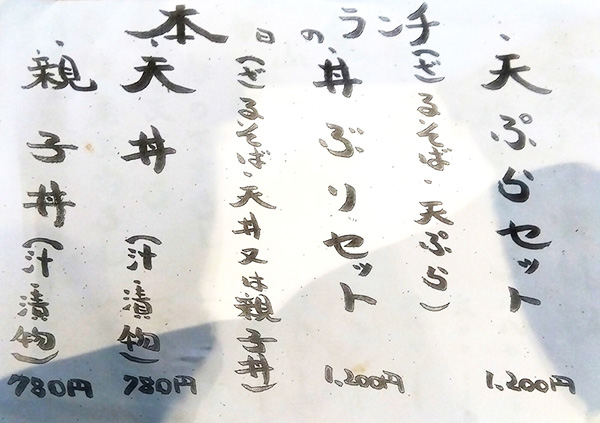 本日のランチ
・天ぷらセット 1,200円
(ざるそば・天ぷら)
・丼ぶりセット 1,200円
(ざるそば・天丼又は親子丼)
・天丼(汁漬物) 780円
・親子丼(汁漬物) 780円